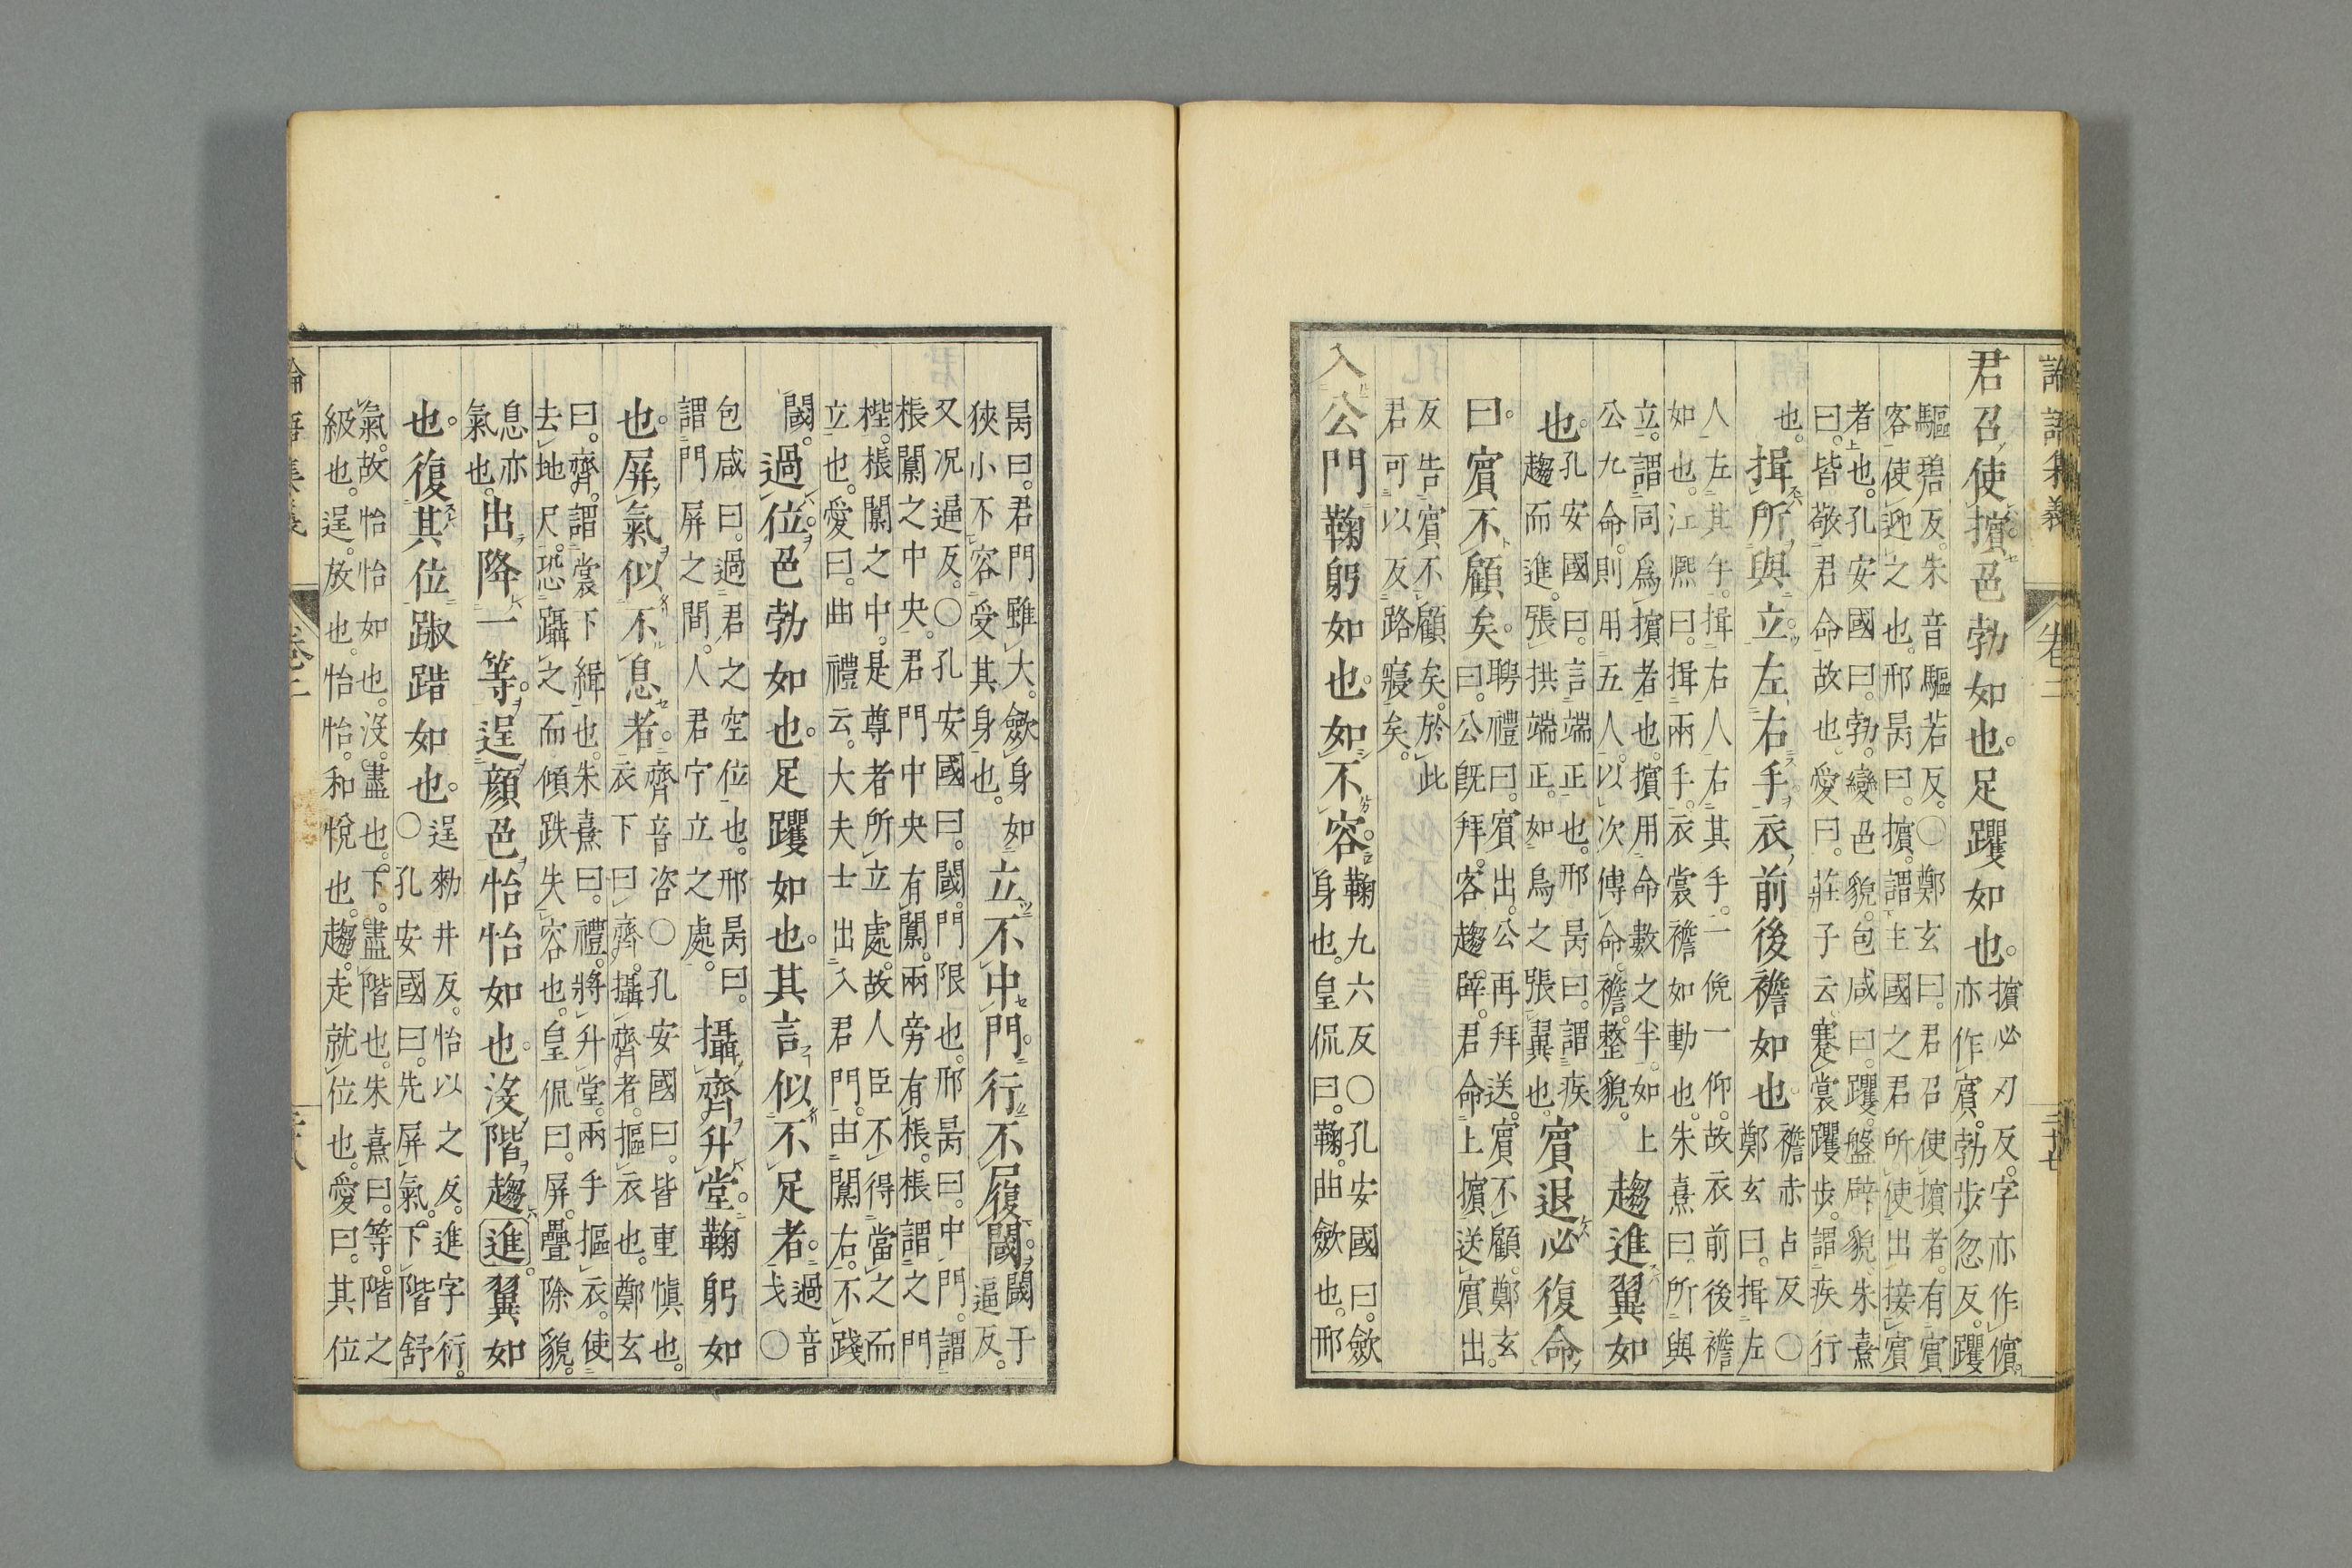 論語集義
卷二
三十七
君召使擯色勃如也。足躩如也。
擯必刃反。字亦作儐。
亦作賓。勃步忽反。躩
驅碧反。朱音驅若反。○鄭玄曰。君召使擯者。有賓
客使迎之也。邢昺曰。擯。謂主國之君所使出接賓
者也。孔安國曰。勃。變色貌。包咸曰。躩。盤辟貌。朱熹
曰。皆敬君命故也。愛曰。莊子云。蹇裳躩步。謂疾行
也。
揖所與立。左右手。衣前後襜如也
襜赤占反○
鄭玄曰。揖左
人左其手。揖右人右其手。一俛一仰。故衣前後襜
如也。江熙曰。揖兩手。衣裳襜如動也。朱熹曰。所與
立。謂同爲擯者也。擯用命數之半。如上
公九命。則用五人。以次傳命。襜。整貌。
趨進翼如
也。
孔安國曰。言端正也。邢昺曰。謂疾
趨而進。張拱端正。如鳥之張翼也。
賓退必復命
曰。賓不顧矣。
聘禮曰。賓出。公再拜送。賓不顧。鄭玄
曰。公既拜。客趨辟。君命上擯送賓出。
反告賓不顧矣。於此
君可以反路寢矣。
入公門鞠躬如也。如不容。
鞠九六反○孔安國曰。歛
身也。皇侃曰。鞠。曲歛也。邢
昺曰。君門雖大。歛身如
狹小不容受其身也。
立不中門。行不履閾。
閾于
逼反。
又况逼反。○孔安國曰。閾。門限也。邢昺曰。中門。謂
棖闑之中央。君門中央有闑。兩旁有棖。棖謂之門
梐。棖闑之中。是尊者所立處。故人臣不得當之而
立也。愛曰。曲禮云。大夫士出入君門。由闑右。不踐
閾。
過位。色勃如也。足躩如也。其言似不足者。
過音
戈○
包咸曰。過君之空位也。邢昺曰。
謂門屏之間。人君宁立之處。
攝齊升堂。鞠躬如
也。屏氣似不息者。
齊音咨○孔安國曰。皆重愼也。
衣下曰齊。攝齊者。摳衣也。鄭玄
曰。齊。謂裳下緝也。朱熹曰。禮。將升堂。兩手摳衣。使
去地尺。恐躡之而傾跌失容也。皇侃曰。屏。疊除貌。
息亦
氣也。
出降一等。逞顔色怡怡如也。沒階趨進。翼如
也。復其位踧踖如也。
逞勑井反。怡以之反。進字衍。
○孔安國曰。先屏氣。下階舒
氣。故怡怡如也。沒。盡也。下。盡階也。朱熹曰。等。階之
級也。逞。放也。怡怡。和悅也。趨。走就位也。愛曰。其位
論語集義
卷二